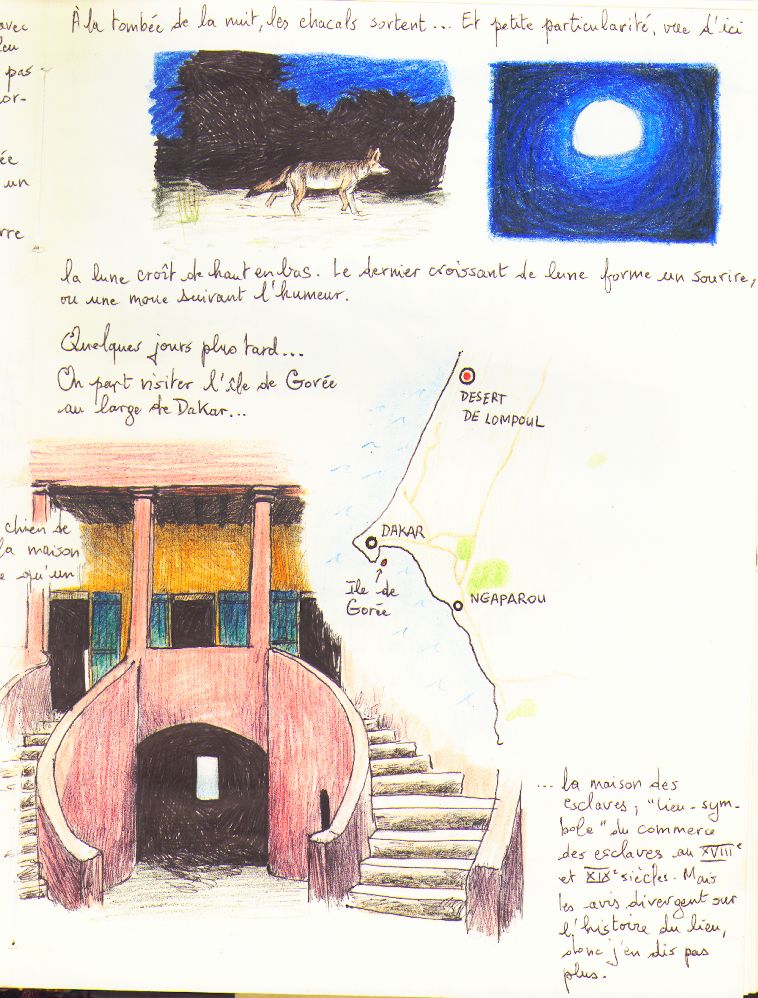 À la tombée de la nuit, les chacals sortent... Et petite particularité, vue d'ici
avec
pas
or-
ée
un
rre
la lune croît de haut en bas. Le dernier croissant de lune forme un sourire,
ou une moue suivant l'humeur.
Quelques jours plus tard...
On part visiter l'île de Gorée
au large de Dakar...
DESERT
DE LOMPOUL
DAKAR
Ile de
Gorée
NGAPAROU
chien se
la maison
qu'un
... la maison des
esclaves, "lieu-sym-
bole" du commerce
des esclaves au XVIIIe
et XIXe siècles. Mais
les avis divergent sur
l'histoire du lieu,
donc j'en dis pas
plus.